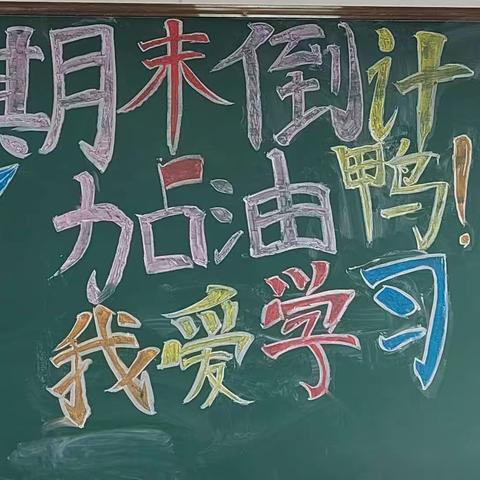 期末倒计
加油鸭!
我爱学习